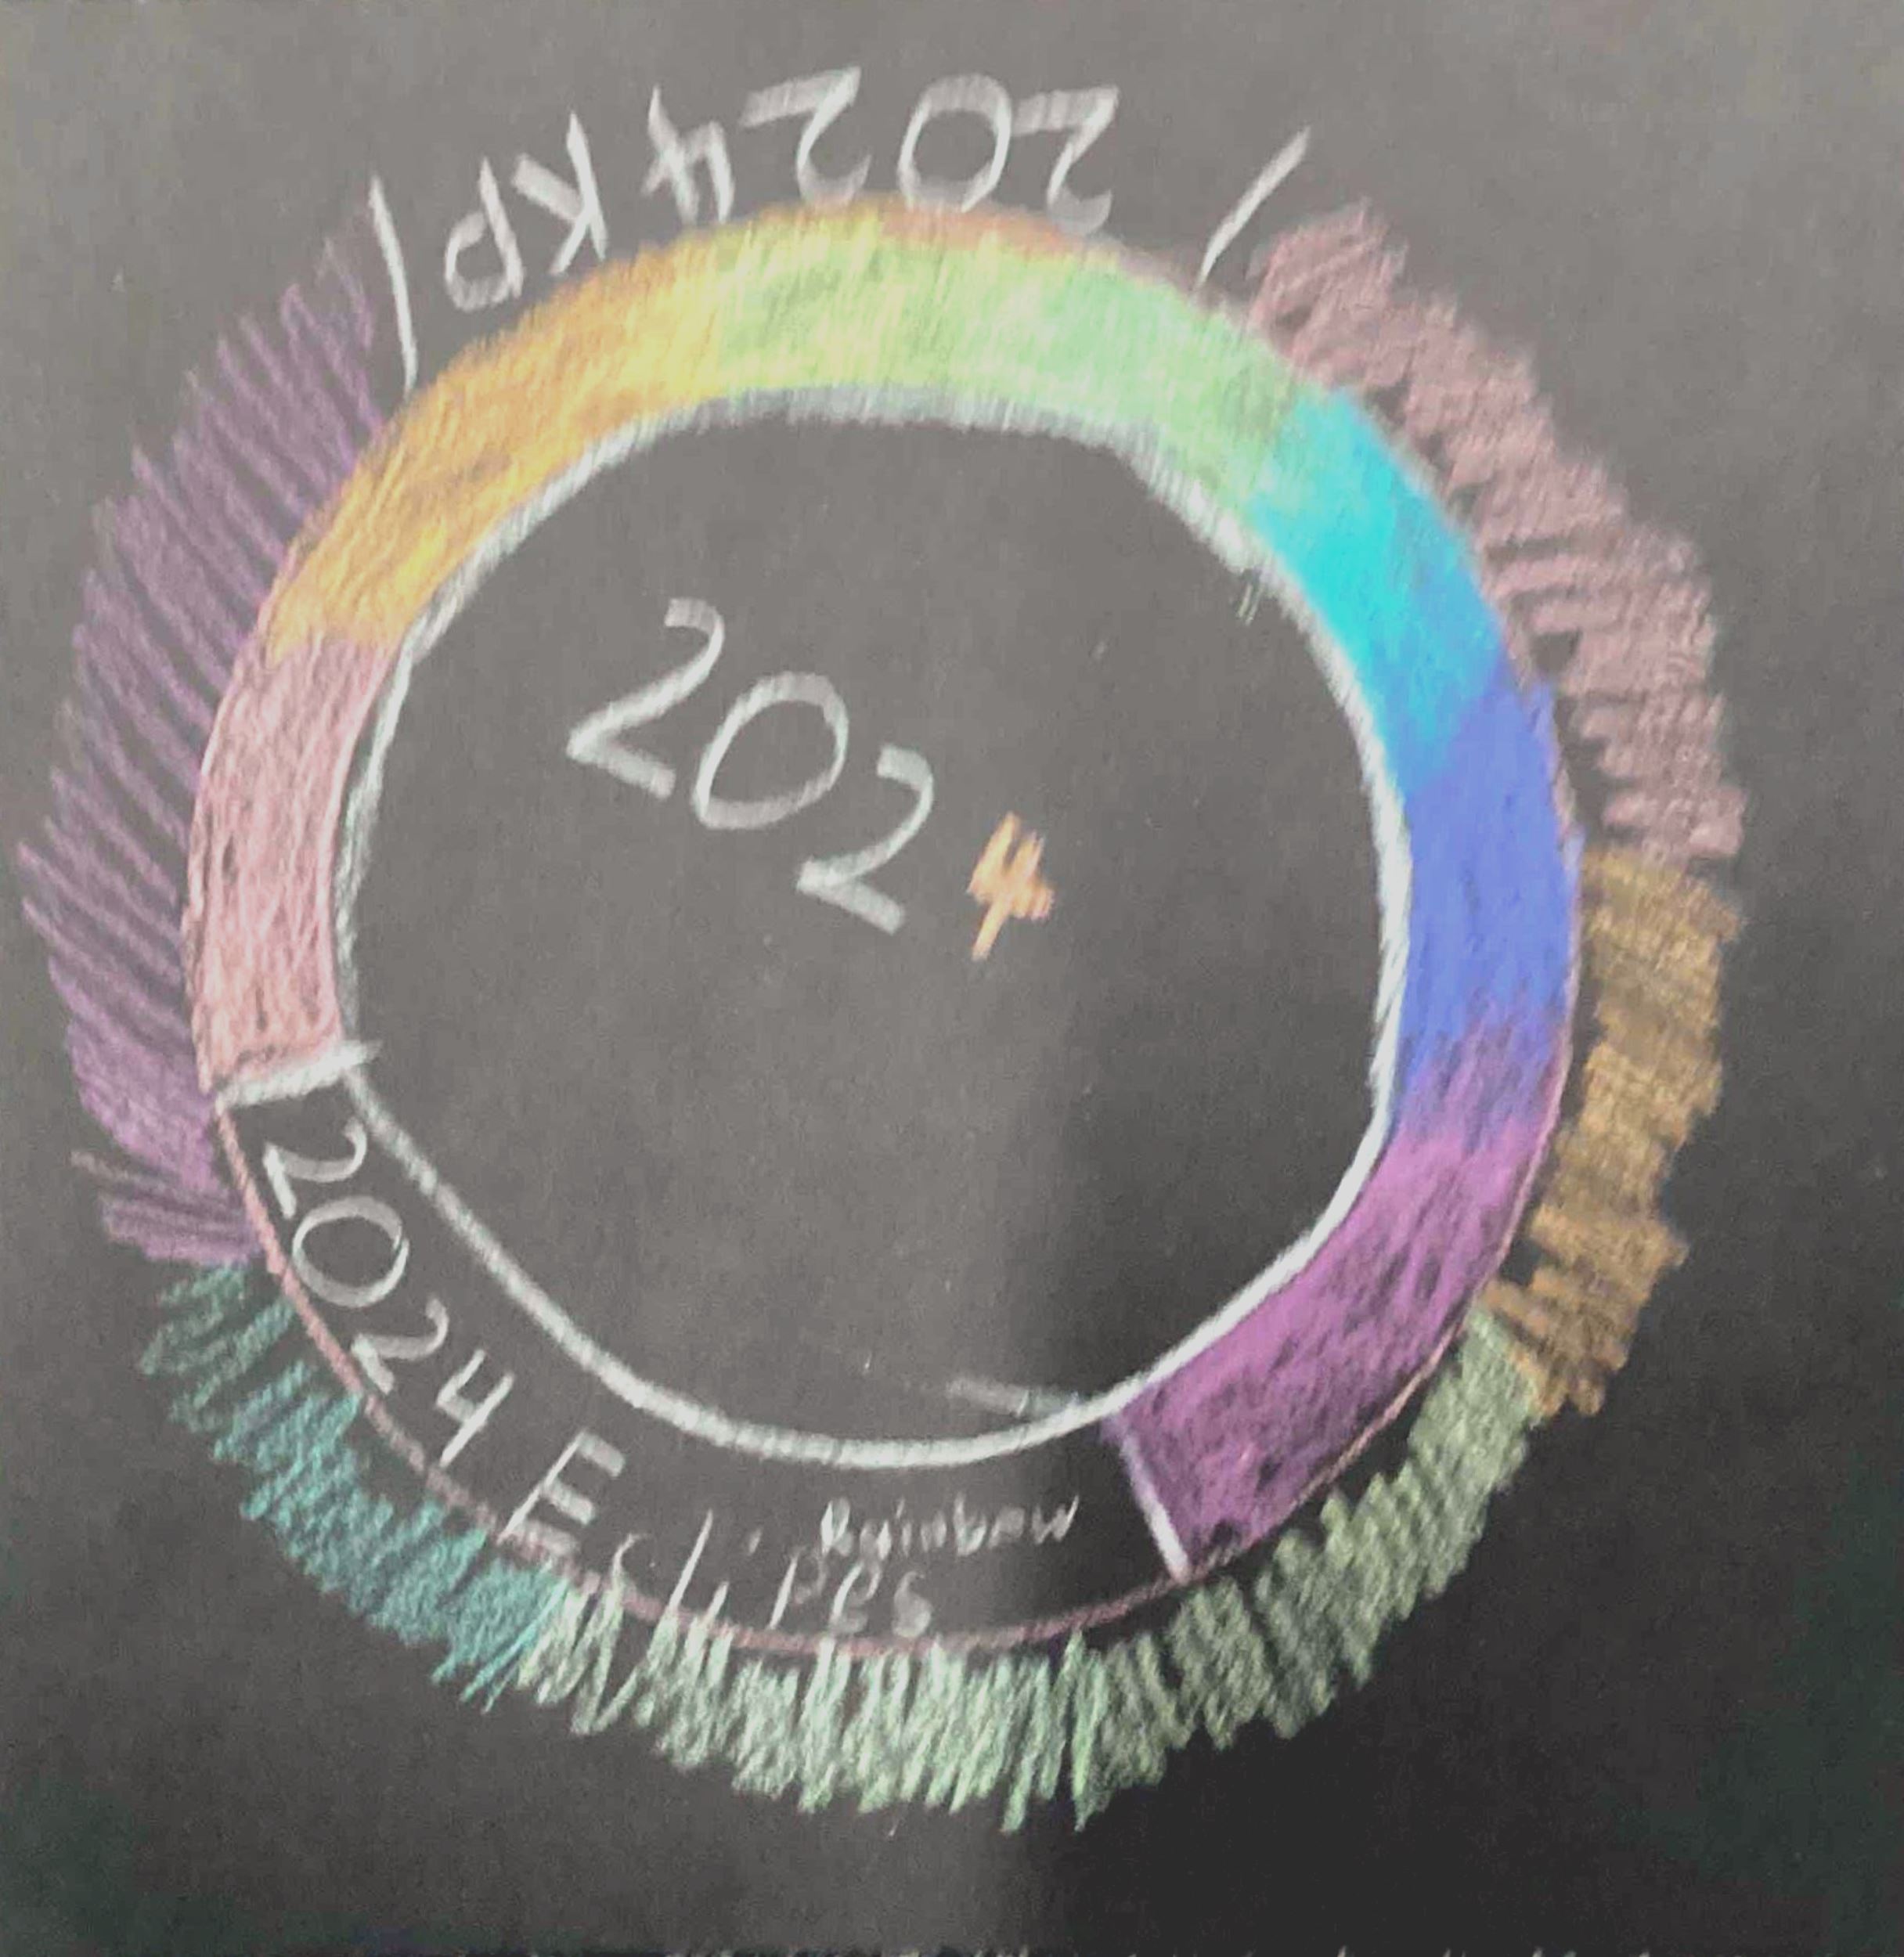 2024 KP
2024
2024 Eclipes
Rainbow